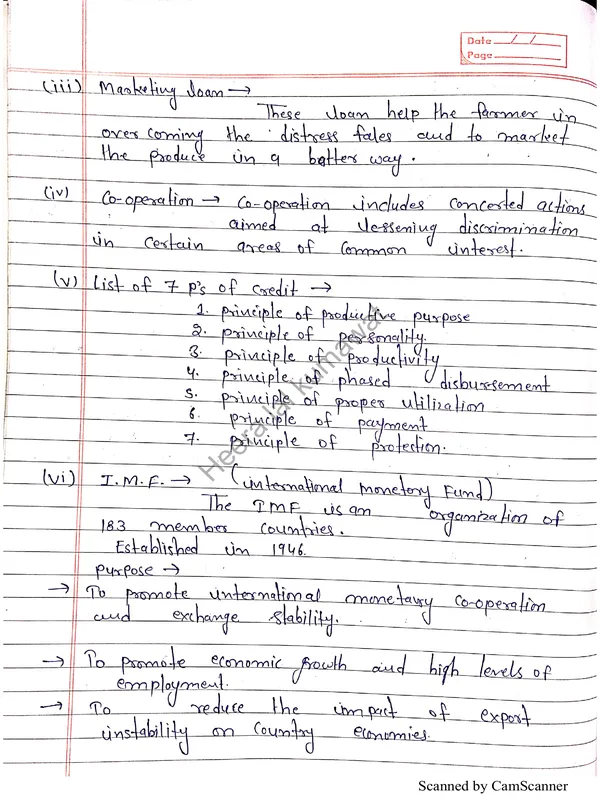 Date / /
Page
(iii) Marketing loan →
These loan help the farmer in
over coming the distress fales and to market
the produce in a better way.
(iv) Co-operation → Co-operation includes concerted actions
aimed at lessening discrimination
in certain areas of common interest.
(v) List of 7 p's of credit →
1. principle of productive purpose
2. principle of personality.
3. principle of productivity
4. principle of phased disbursement
5. principle of proper utilization
6. principle of payment
7. principle of protection.
Heeralal Kumawat
(vi) I.M.F. → (international monetory Fund)
The IMF is an organization of
183 member countries.
Established in 1946.
purpose →
→ To promote international monetary co-operation
and exchange stability.
→ To promote economic growth and high levels of
employment.
→ To reduce the impact of export
instability on country economies.
Scanned by CamScanner